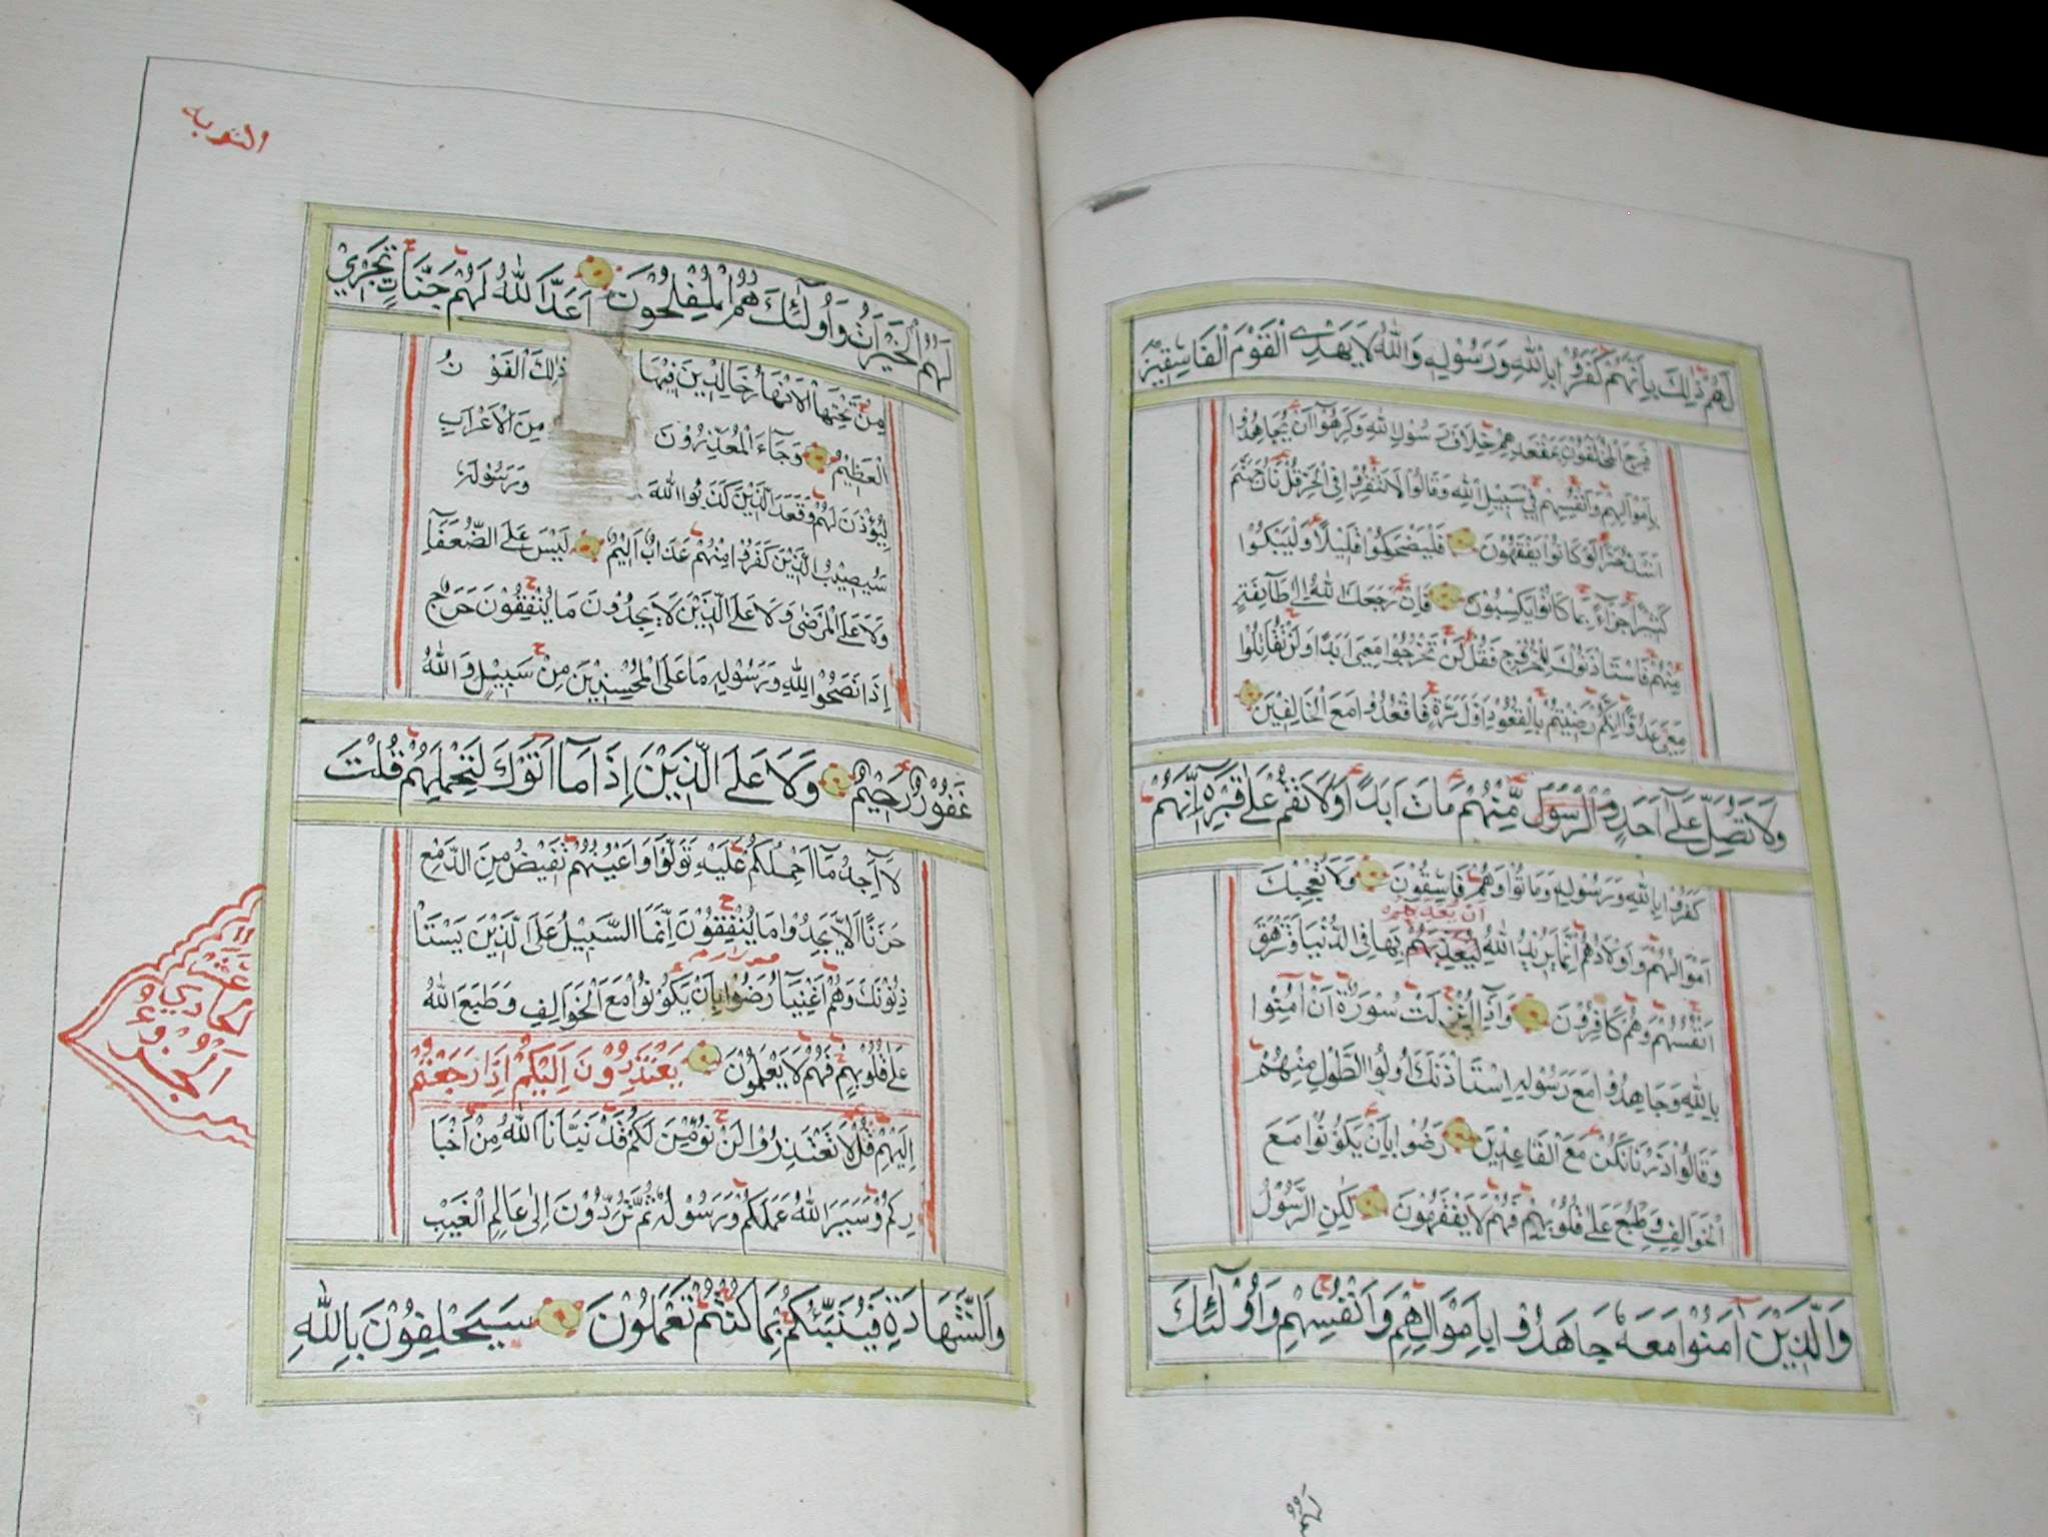 لَهُمْ ذٰلِكَ بِاَنَّهُمْ كَفَرُوْا بِاللّٰهِ وَرَسُوْلِهٖ وَاللّٰهُ لَا يَهْدِى الْقَوْمَ الْفَاسِقِيْنَ
فَرِحَ الْمُخَلَّفُوْنَ بِمَقْعَدِهِمْ خِلَافَ رَسُوْلِ اللّٰهِ وَكَرِهُوْٓا اَنْ يُّجَاهِدُوْا
بِاَمْوَالِهِمْ وَاَنْفُسِهِمْ فِيْ سَبِيْلِ اللّٰهِ وَقَالُوْا لَا تَنْفِرُوْا فِى الْحَرِّ قُلْ نَارُ جَهَنَّمَ
اَشَدُّ حَرًّا لَوْ كَانُوْا يَفْقَهُوْنَ فَلْيَضْحَكُوْا قَلِيْلًا وَلْيَبْكُوْا
كَثِيْرًا جَزَآءً بِمَا كَانُوْا يَكْسِبُوْنَ فَاِنْ رَجَعَكَ اللّٰهُ اِلٰى طَآئِفَةٍ
مِنْهُمْ فَاسْتَأْذَنُوْكَ لِلْخُرُوْجِ فَقُلْ لَنْ تَخْرُجُوْا مَعِيَ اَبَدًا وَلَنْ تُقَاتِلُوْا
مَعِيَ عَدُوًّا اِنَّكُمْ رَضِيْتُمْ بِالْقُعُوْدِ اَوَّلَ مَرَّةٍ فَاقْعُدُوْا مَعَ الْخَالِفِيْنَ
وَلَا تُصَلِّ عَلٰٓى اَحَدٍ الرَّسُوْلُ مِّنْهُمْ مَاتَ اَبَدًا وَلَا تَقُمْ عَلٰى قَبْرِهٖ اِنَّهُمْ
كَفَرُوْا بِاللّٰهِ وَرَسُوْلِهٖ وَمَاتُوْا وَهُمْ فَاسِقُوْنَ وَلَا تُعْجِبْكَ
اَنْ يُعَذِّبَهُمْ
اَمْوَالُهُمْ وَاَوْلَادُهُمْ اِنَّمَا يُرِيْدُ اللّٰهُ لِيُعَذِّبَهُمْ بِهَا فِى الدُّنْيَا وَتَزْهَقَ
اَنْفُسُهُمْ وَهُمْ كَافِرُوْنَ وَاِذَآ اُنْزِلَتْ سُوْرَةٌ اَنْ اٰمِنُوْا
بِاللّٰهِ وَجَاهِدُوْا مَعَ رَسُوْلِهِ اسْتَأْذَنَكَ اُولُوا الطَّوْلِ مِنْهُمْ
وَقَالُوْا ذَرْنَا نَكُنْ مَعَ الْقَاعِدِيْنَ رَضُوْا بِاَنْ يَكُوْنُوْا مَعَ
الْخَوَالِفِ وَطُبِعَ عَلٰى قُلُوْبِهِمْ فَهُمْ لَا يَفْقَهُوْنَ لٰكِنِ الرَّسُوْلُ
وَالَّذِيْنَ اٰمَنُوْا مَعَهٗ جَاهَدُوْا بِاَمْوَالِهِمْ وَاَنْفُسِهِمْ وَاُولٰٓئِكَ
لهم
التوبه
لَهُمُ الْخَيْرَاتُ وَاُولٰٓئِكَ هُمُ الْمُفْلِحُوْنَ اَعَدَّ اللّٰهُ لَهُمْ جَنَّاتٍ تَجْرِيْ
مِنْ تَحْتِهَا الْاَنْهَارُ خَالِدِيْنَ فِيْهَا ذٰلِكَ الْفَوْزُ
الْعَظِيْمُ وَجَآءَ الْمُعَذِّرُوْنَ مِنَ الْاَعْرَابِ
لِيُؤْذَنَ لَهُمْ وَقَعَدَ الَّذِيْنَ كَذَبُوا اللّٰهَ وَرَسُوْلَهٗ
سَيُصِيْبُ الَّذِيْنَ كَفَرُوْا مِنْهُمْ عَذَابٌ اَلِيْمٌ لَيْسَ عَلَى الضُّعَفَآءِ
وَلَا عَلَى الْمَرْضٰى وَلَا عَلَى الَّذِيْنَ لَا يَجِدُوْنَ مَا يُنْفِقُوْنَ حَرَجٌ
اِذَا نَصَحُوْا لِلّٰهِ وَرَسُوْلِهٖ مَا عَلَى الْمُحْسِنِيْنَ مِنْ سَبِيْلٍ وَاللّٰهُ
غَفُوْرٌ رَحِيْمٌ وَلَا عَلَى الَّذِيْنَ اِذَا مَآ اَتَوْكَ لِتَحْمِلَهُمْ قُلْتَ
لَآ اَجِدُ مَآ اَحْمِلُكُمْ عَلَيْهِ تَوَلَّوْا وَاَعْيُنُهُمْ تَفِيْضُ مِنَ الدَّمْعِ
حَزَنًا اَلَّا يَجِدُوْا مَا يُنْفِقُوْنَ اِنَّمَا السَّبِيْلُ عَلَى الَّذِيْنَ يَسْتَأْ
ذِنُوْنَكَ وَهُمْ اَغْنِيَآءُ رَضُوْا بِاَنْ يَكُوْنُوْا مَعَ الْخَوَالِفِ وَطَبَعَ اللّٰهُ
عَلٰى قُلُوْبِهِمْ فَهُمْ لَا يَعْلَمُوْنَ يَعْتَذِرُوْنَ اِلَيْكُمْ اِذَا رَجَعْتُمْ
اِلَيْهِمْ قُلْ لَا تَعْتَذِرُوْا لَنْ نُؤْمِنَ لَكُمْ قَدْ نَبَّاَنَا اللّٰهُ مِنْ اَخْبَا
رِكُمْ وَسَيَرَى اللّٰهُ عَمَلَكُمْ وَرَسُوْلُهٗ ثُمَّ تُرَدُّوْنَ اِلٰى عَالِمِ الْغَيْبِ
وَالشَّهَادَةِ فَيُنَبِّئُكُمْ بِمَا كُنْتُمْ تَعْمَلُوْنَ سَيَحْلِفُوْنَ بِاللّٰهِ
اَلْجُزْءُ
الحادي
عشر